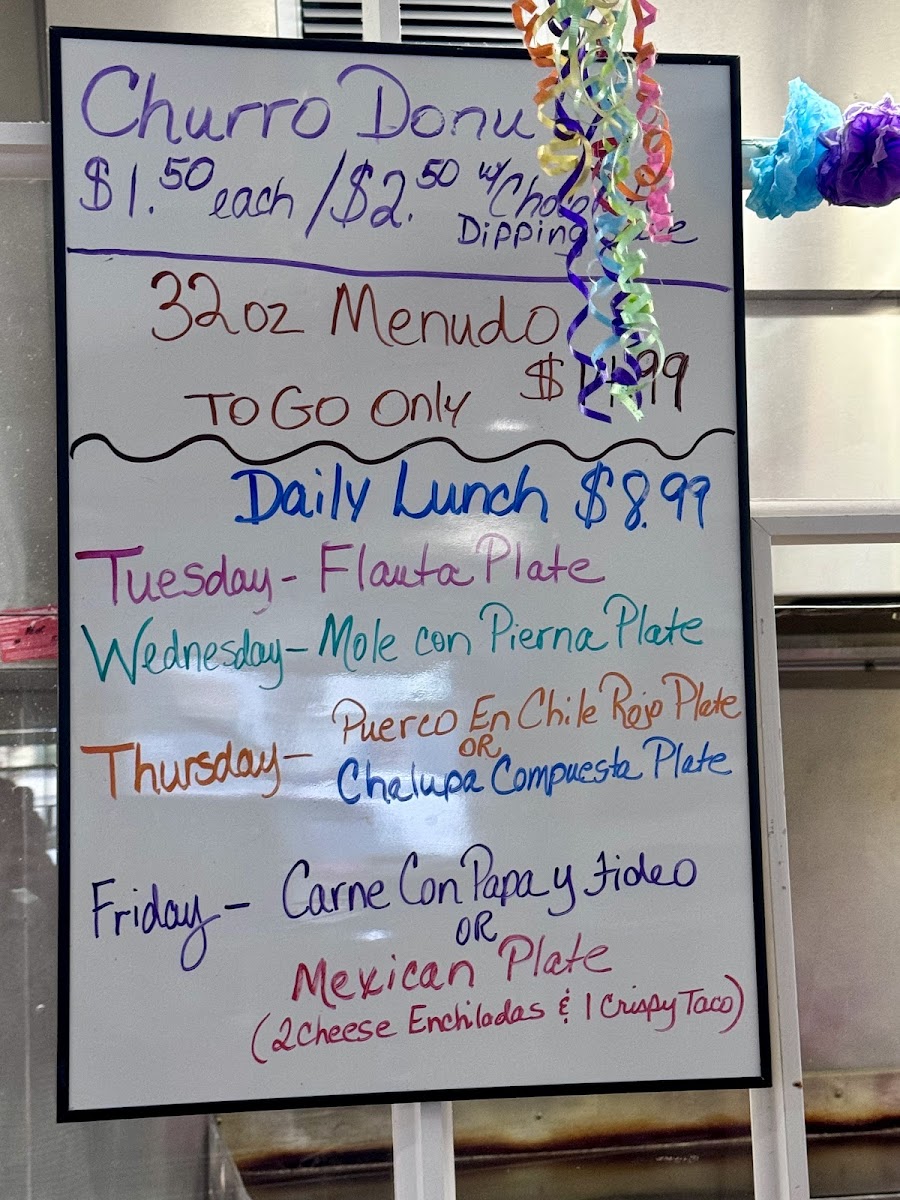 Churro Donu
$1.50 each / $2.50 w/
Dipping
32oz Menudo
$14.99
To Go Only
Daily Lunch $8.99
Tuesday - Flauta Plate
Wednesday - Mole con Pierna Plate
Puerco En Chile Rojo Plate
OR
Thursday -
Chalupa Compuesta Plate
Friday - Carne Con Papa y fideo
OR
Mexican Plate
(2 Cheese Enchiladas & 1 Crispy Taco)